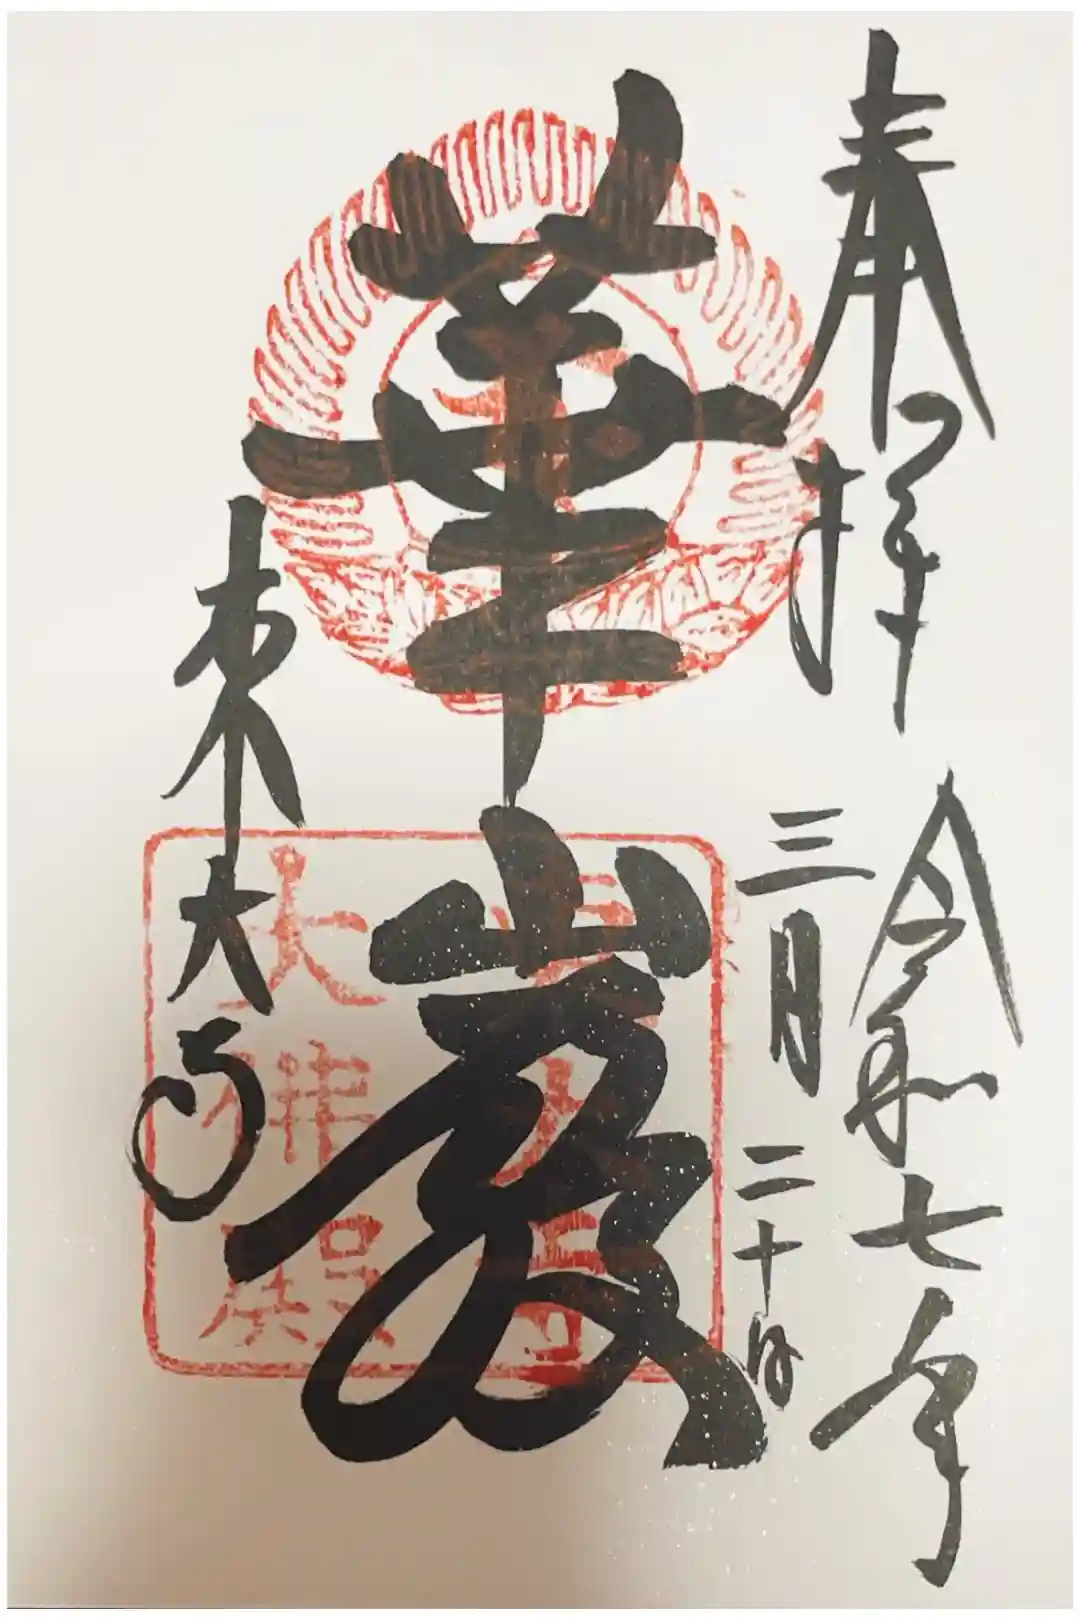 奉拝
令和七年
三月二十日
華厳
東大寺
東大寺
大佛殿